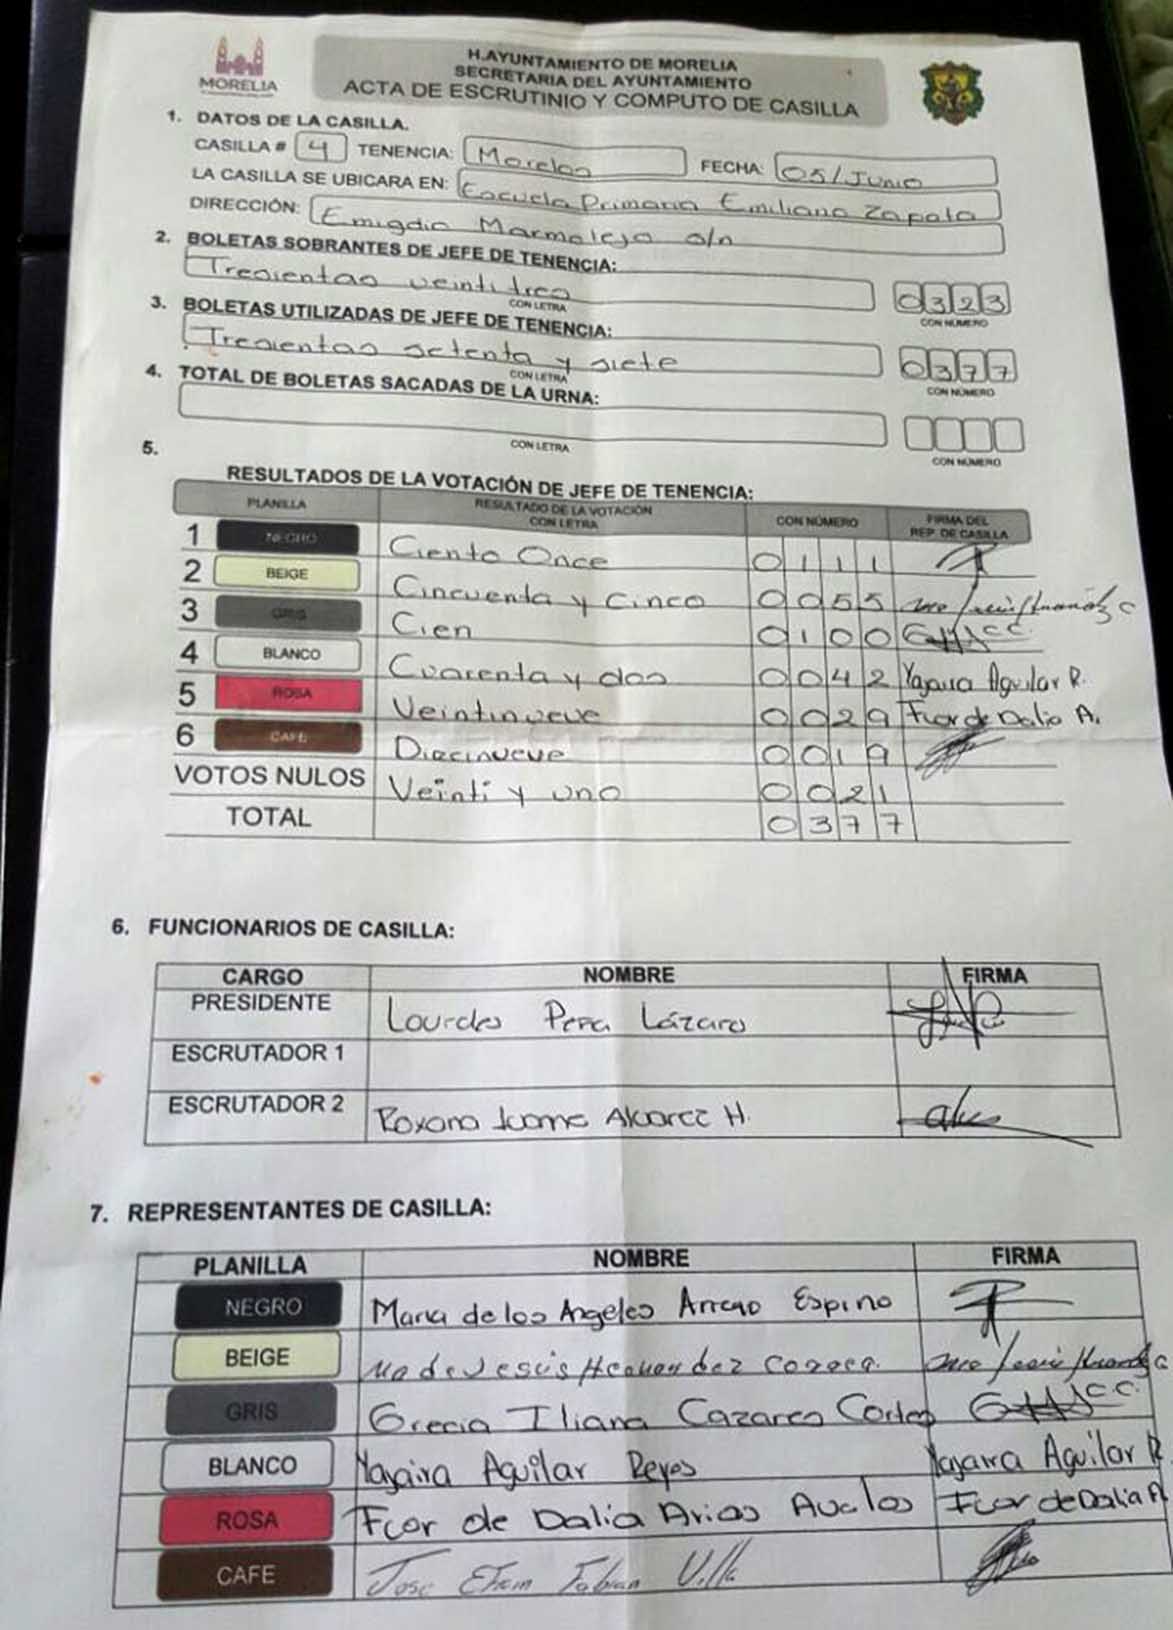 MORELIA
H.AYUNTAMIENTO DE MORELIA
SECRETARIA DEL AYUNTAMIENTO
ACTA DE ESCRUTINIO Y COMPUTO DE CASILLA
1. DATOS DE LA CASILLA.
CASILLA # 4 TENENCIA: Morelos FECHA: 05/Junio
LA CASILLA SE UBICARA EN: Escuela Primaria Emiliano Zapata
DIRECCIÓN: Emigdio Marmolejo s/n
2. BOLETAS SOBRANTES DE JEFE DE TENENCIA:
Tresientas veintitres 0323
CON LETRA CON NÚMERO
3. BOLETAS UTILIZADAS DE JEFE DE TENENCIA:
Tresientas setenta y siete 0377
CON LETRA CON NÚMERO
4. TOTAL DE BOLETAS SACADAS DE LA URNA:
CON LETRA CON NÚMERO
5.
RESULTADOS DE LA VOTACIÓN DE JEFE DE TENENCIA:
PLANILLA RESULTADO DE LA VOTACIÓN CON LETRA CON NÚMERO FIRMA DEL REP. DE CASILLA
1 NEGRO Ciento Once 0111
2 BEIGE Cincuenta y Cinco 0055
3 GRIS Cien 0100
4 BLANCO Cuarenta y dos 0042 Yajaira Aguilar R.
5 ROSA Veintinueve 0029 Flor de Dalia A.
6 CAFE Diecinueve 0019
VOTOS NULOS Veinti y uno 0021
TOTAL 0377
6. FUNCIONARIOS DE CASILLA:
CARGO NOMBRE FIRMA
PRESIDENTE Lourdes Pera Lázaro
ESCRUTADOR 1
ESCRUTADOR 2 Roxana Ivonne Alvarez H.
7. REPRESENTANTES DE CASILLA:
PLANILLA NOMBRE FIRMA
NEGRO Maria de los Angeles Arreno Espino
BEIGE Ma de Jesús Hernandez
GRIS Grecia Iliana Cazares Cortes
BLANCO Yajaira Aguilar Reyes Yajaira Aguilar R
ROSA Flor de Dalia Arias Avalos Flor de Dalia A
CAFE Jose Efrain Fabian Villa